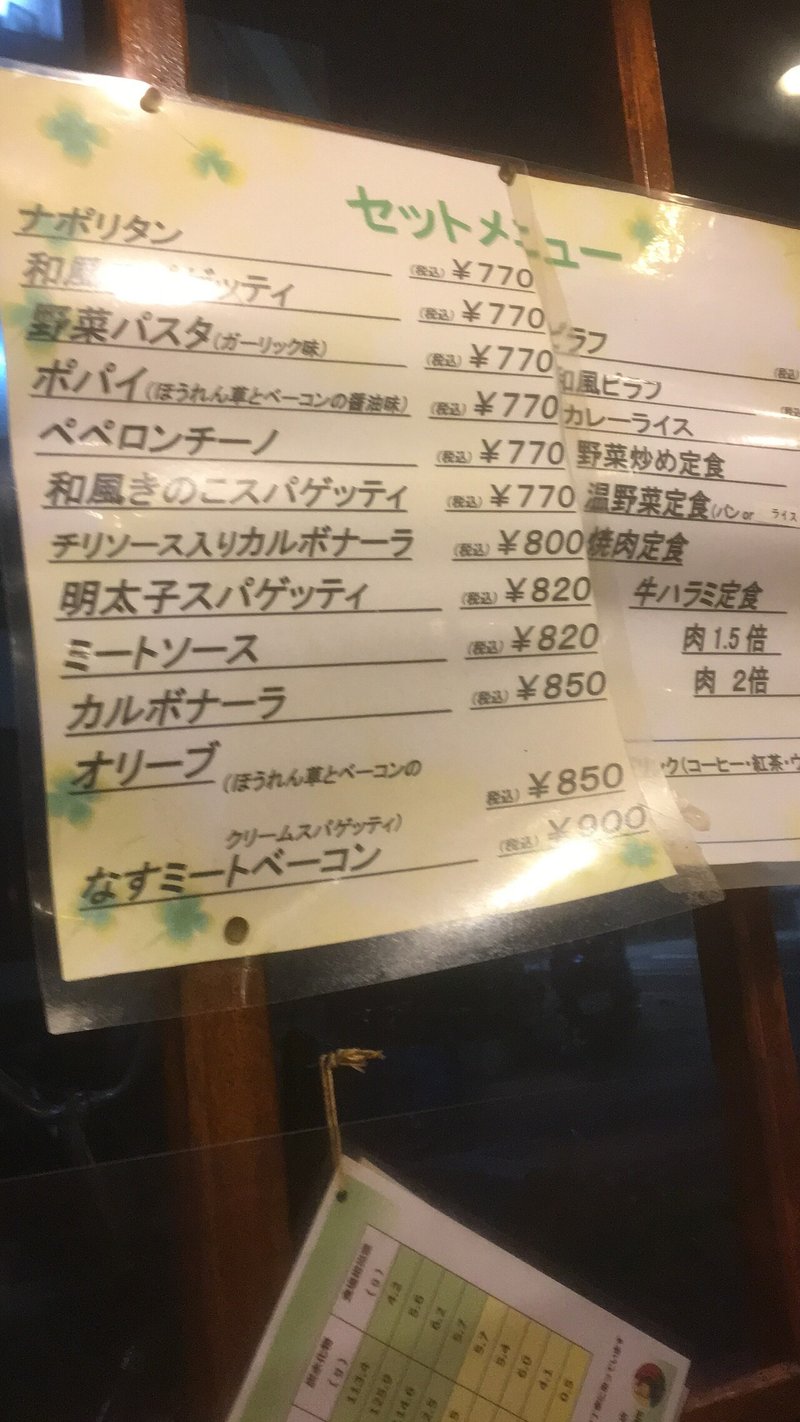 セットメニュー
ナポリタン (税込)￥770
和風 パゲッティ (税込)￥770
野菜パスタ(ガーリック味) (税込)￥770
ポパイ(ほうれん草とベーコンの醤油味) (税込)￥770
ペペロンチーノ (税込)￥770
和風きのこスパゲッティ (税込)￥770
チリソース入りカルボナーラ (税込)￥800
明太子スパゲッティ (税込)￥820
ミートソース (税込)￥820
カルボナーラ (税込)￥850
オリーブ(ほうれん草とベーコンの
クリームスパゲッティ) 税込)￥850
なすミートベーコン (税込)￥900
ラフ (税込)
和風ピラフ (税込)
カレーライス
野菜炒め定食
温野菜定食(パンor ライス
焼肉定食
牛ハラミ定食
肉 1.5 倍
肉 2倍
ク(コーヒー・紅茶・ウ
炭水化物
(g)
113.4
125.0
14.6
(g)
4.3
5.6
6.2
5.7
5.7
5.4
6.0
4.1
0.5